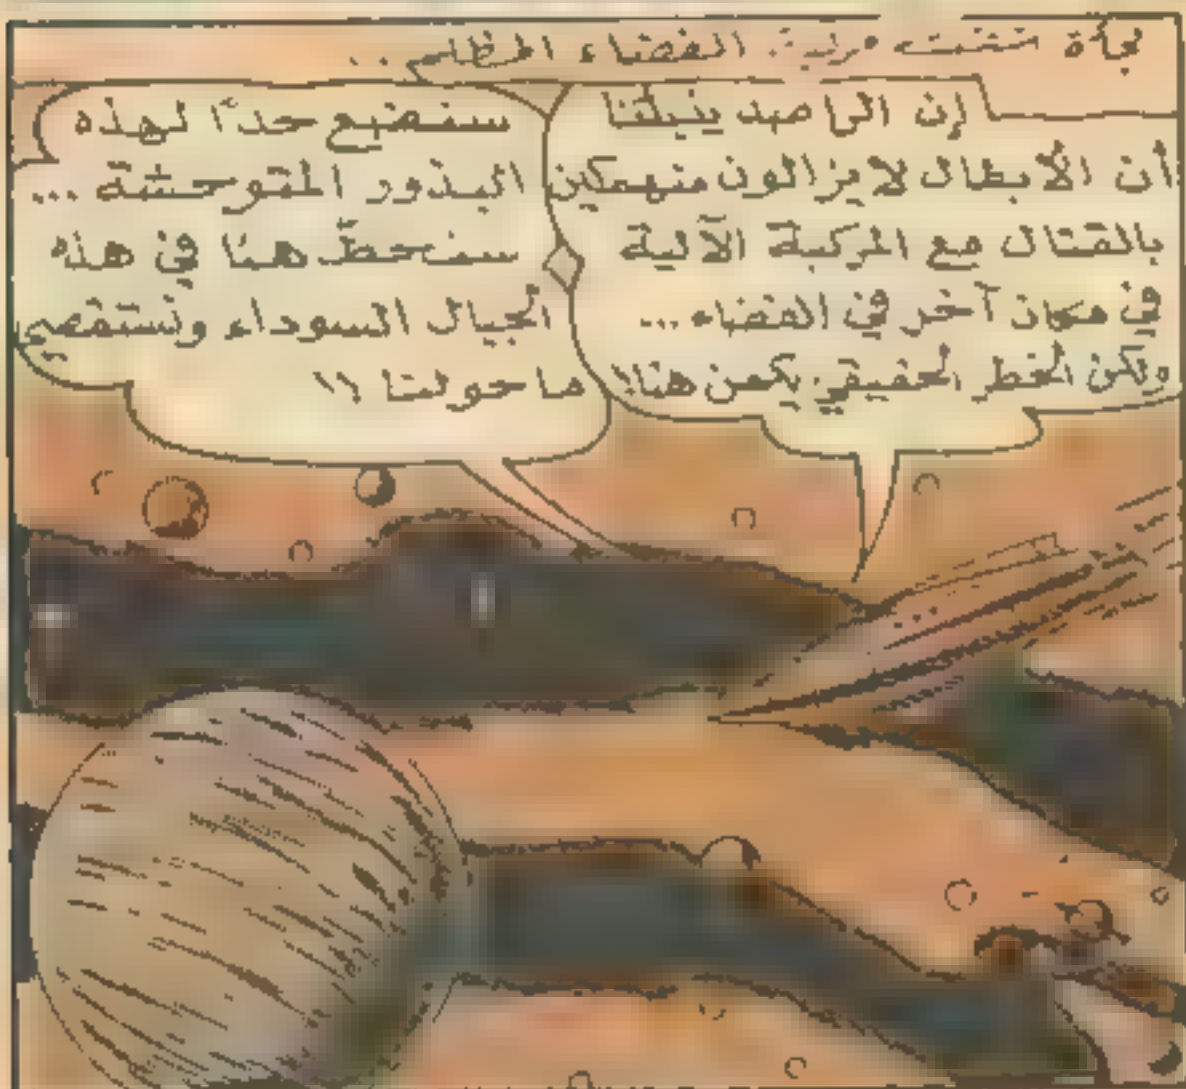 فجأة تشتت مركبة الفضاء المظلم...
إن الراصد ينبئنا
أن الأبطال لا يزالون منهمكين
بالقتال مع المركبة الآلية
في مكان آخر في الفضاء...
ولكن الخطر الحقيقي يكمن هنا!
سنضع حدًا لهذه
البذور المتوحشة...
سنحطّ هنا في هذه
الجبال السوداء ونستقصي
ما حولنا !!